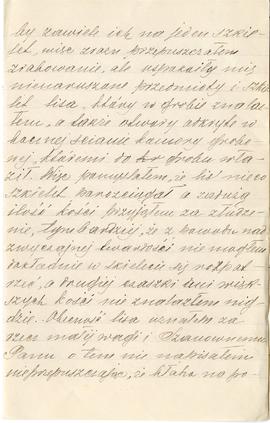 by zawiele ich na jeden szkie-
let, więc zrazu przepuszczałem
zrabowanie, ale uspakoiły mię
nienaruszone przedmioty i szkie-
let lisa, który w grobie znala-
łem, a także otwory odkryte w
bocznej ścianie komory grobo-
wej, któremi do grobu wła-
ził. Więc pomyślałem, że lis nieco
szkielet porozciągał a zadużą
ilość kości przyjąłem za złudze-
nie, tym bardziej, że z powodu nad-
zwyczajnej twardości nie mogłem
dokładnie w szkielecie się rozpat-
rzeć, a drugiej czaszki ani więk-
szych kości nie znalazłem nig-
dzie. Obecność lisa uznałem za
rzecz małej wagi i Szanownemu
Panu o tem nie napisałem
nieprzepuszczając, że na po-